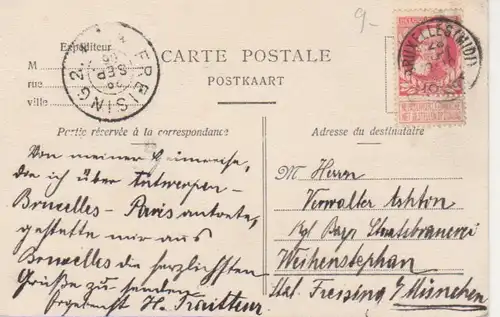 9-
Expéditeur
CARTE POSTALE
POSTKAART
M
rue
ville
FREISING 2.
SEP
BRUXELLES (MIDI)
Partie réservée à la correspondance
Adresse du destinataire
Von meiner Heimreise,
die ich über Antwerpen-
Bruxelles-Paris antrete,
gestatte mir aus
Bruxelles die herzlichsten
Grüße zu senden
Ergebenst H. Trautteur.
M Herrn
Verwalter Ashton
Kgl Bayr Staatsbrauerei
Weihenstephan
Stat. Freising b/ München